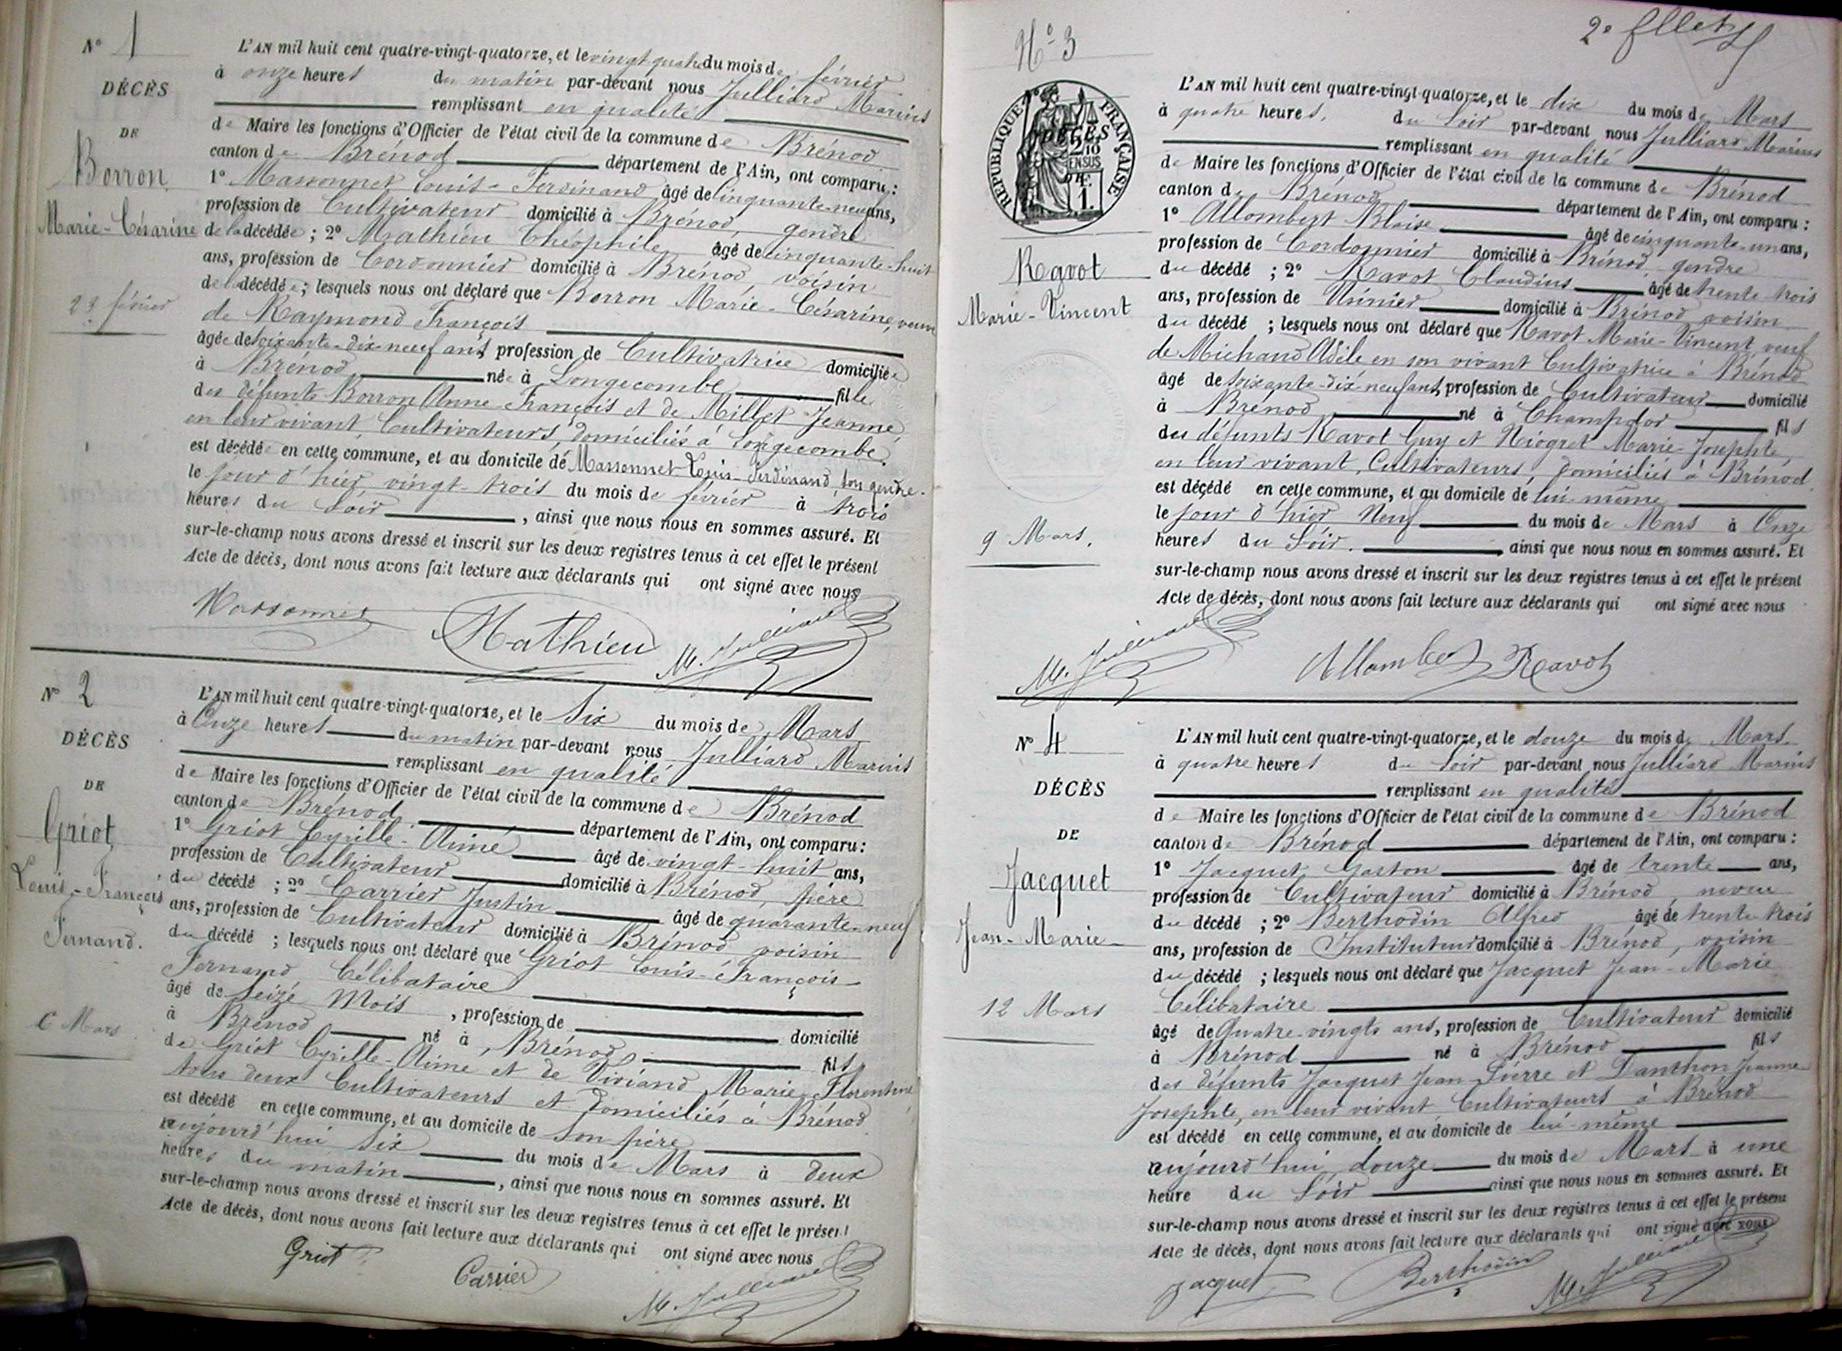 N° 1
DÉCÈS
DE
Borron
Marie-Césarine
23 février
L'AN mil huit cent quatre-vingt-quatorze, et le vingt quatre du mois de février
à onze heures du matin par-devant nous Julliard Marius
remplissant en qualité
de Maire les fonctions d'Officier de l'état civil de la commune de Brénod
canton de Brénod département de l'Ain, ont comparu :
1° Massonnet Louis-Ferdinand âgé de cinquante-neuf ans,
profession de Cultivateur domicilié à Brénod, gendre
de la décédée ; 2° Mathieu Théophile âgé de cinquante-huit
ans, profession de Cordonnier domicilié à Brénod voisin
de la décédée ; lesquels nous ont déclaré que Borron Marie-Césarine, veuve
de Raymond François
âgée de soixante-dix-neuf ans, profession de Cultivatrice domiciliée
à Brénod née à Longecombe fille
des défunts Borron Anne-François et de Millet Jeanne
en leur vivant Cultivateurs, domiciliés à Longecombe
est décédée en cette commune, et au domicile de Massonnet Louis-Ferdinand son gendre.
le jour d'hier vingt-trois du mois de février à trois
heures du soir, ainsi que nous nous en sommes assuré. Et
sur-le-champ nous avons dressé et inscrit sur les deux registres tenus à cet effet le présent
Acte de décès, dont nous avons fait lecture aux déclarants qui ont signé avec nous
Massonnet Mathieu M. Julliard
N° 2
DÉCÈS
DE
Griot
Louis-François
Fernand.
6 Mars
L'AN mil huit cent quatre-vingt-quatorze, et le Six du mois de Mars
à Onze heures du matin par-devant nous Julliard Marius
remplissant en qualité
de Maire les fonctions d'Officier de l'état civil de la commune de Brénod
canton de Brénod département de l'Ain, ont comparu :
1° Griot Cyrille-Aimé âgé de vingt-huit ans,
profession de Cultivateur domicilié à Brénod, père
du décédé ; 2° Carrier Justin âgé de quarante-neuf
ans, profession de Cultivateur domicilié à Brénod voisin
du décédé ; lesquels nous ont déclaré que Griot Louis-François
Fernand Célibataire
âgé de Seize Mois, profession de domicilié
à Brénod né à Brénod fils
de Griot Cyrille-Aimé et de Viviand Marie-Florentine
tous deux Cultivateurs et domiciliés à Brénod
est décédé en cette commune, et au domicile de son père
aujourd'hui six du mois de Mars à deux
heures du matin, ainsi que nous nous en sommes assuré. Et
sur-le-champ nous avons dressé et inscrit sur les deux registres tenus à cet effet le présent
Acte de décès, dont nous avons fait lecture aux déclarants qui ont signé avec nous
Griot Carrier M. Julliard
N° 3
RÉPUBLIQUE FRANÇAISE
2/10
EN SUS
1 F.
Ravot
Marie-Vincent
9 Mars.
L'AN mil huit cent quatre-vingt-quatorze, et le dix du mois de Mars
à quatre heures. du Soir par-devant nous Julliard Marius
remplissant en qualité
de Maire les fonctions d'Officier de l'état civil de la commune de Brénod
canton de Brénod département de l'Ain, ont comparu :
1° Allombert Blaise âgé de cinquante-un ans,
profession de Cordonnier domicilié à Brénod gendre
du décédé ; 2° Ravot Claudius âgé de trente trois
ans, profession de domicilié à Brénod voisin
du décédé ; lesquels nous ont déclaré que Ravot Marie-Vincent, veuf
de Michaud Adèle en son vivant Cultivatrice à Brénod
âgé de soixante-dix-neuf ans, profession de Cultivateur domicilié
à Brénod né à Champdor fils
des défunts Ravot Guy et Niogret Marie-Josephte
en leur vivant, Cultivateurs domiciliés à Brénod.
est décédé en cette commune, et au domicile de lui-même
le jour d'hier Neuf du mois de Mars à Onze
heures du Soir. ainsi que nous nous en sommes assuré. Et
sur-le-champ nous avons dressé et inscrit sur les deux registres tenus à cet effet le présent
Acte de décès, dont nous avons fait lecture aux déclarants qui ont signé avec nous
M. Julliard Allombert Ravot
N° 4
DÉCÈS
DE
Jacquet
Jean-Marie
12 Mars
L'AN mil huit cent quatre-vingt-quatorze, et le douze du mois de Mars.
à quatre heures du Soir par-devant nous Julliard Marius
remplissant en qualité
de Maire les fonctions d'Officier de l'état civil de la commune de Brénod
canton de Brénod département de l'Ain, ont comparu :
1° Jacquet Gaston âgé de trente ans,
profession de Cultivateur domicilié à Brénod, neveu
du décédé ; 2° Berthodin Alfred âgé de trente-trois
ans, profession de Instituteur domicilié à Brénod, voisin
du décédé ; lesquels nous ont déclaré que Jacquet Jean-Marie
Célibataire
âgé de Quatre-vingts ans, profession de Cultivateur domicilié
à Brénod né à Brénod fils
des défunts Jacquet Jean-Pierre et Danthon Jeanne
Josephte, en leur vivant Cultivateurs à Brénod
est décédé en cette commune, et au domicile de lui-même
aujourd'hui douze du mois de Mars à une
heure du Soir ainsi que nous nous en sommes assuré. Et
sur-le-champ nous avons dressé et inscrit sur les deux registres tenus à cet effet le présent
Acte de décès, dont nous avons fait lecture aux déclarants qui ont signé avec nous
Jacquet Berthodin M. Julliard